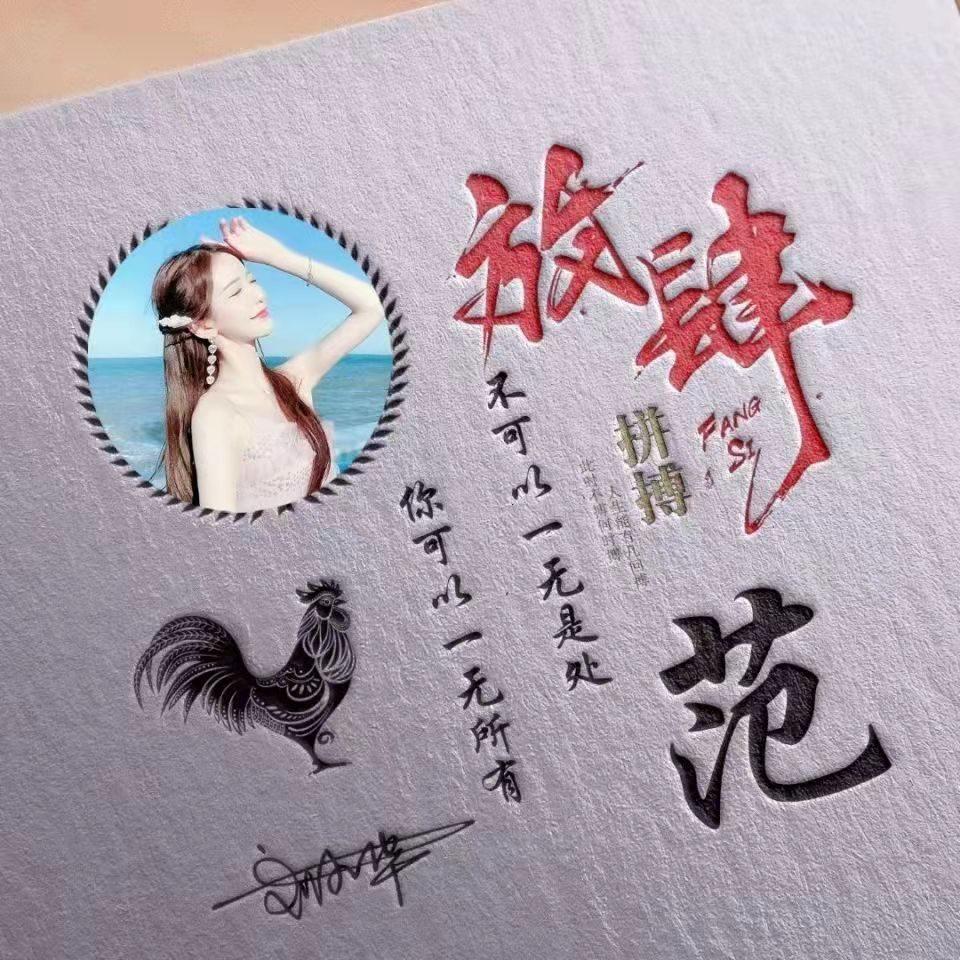 放肆
FANG
SI
拼搏
人生能有几回搏
此时不搏何时搏
你可以一无所有
不可以一无是处
范